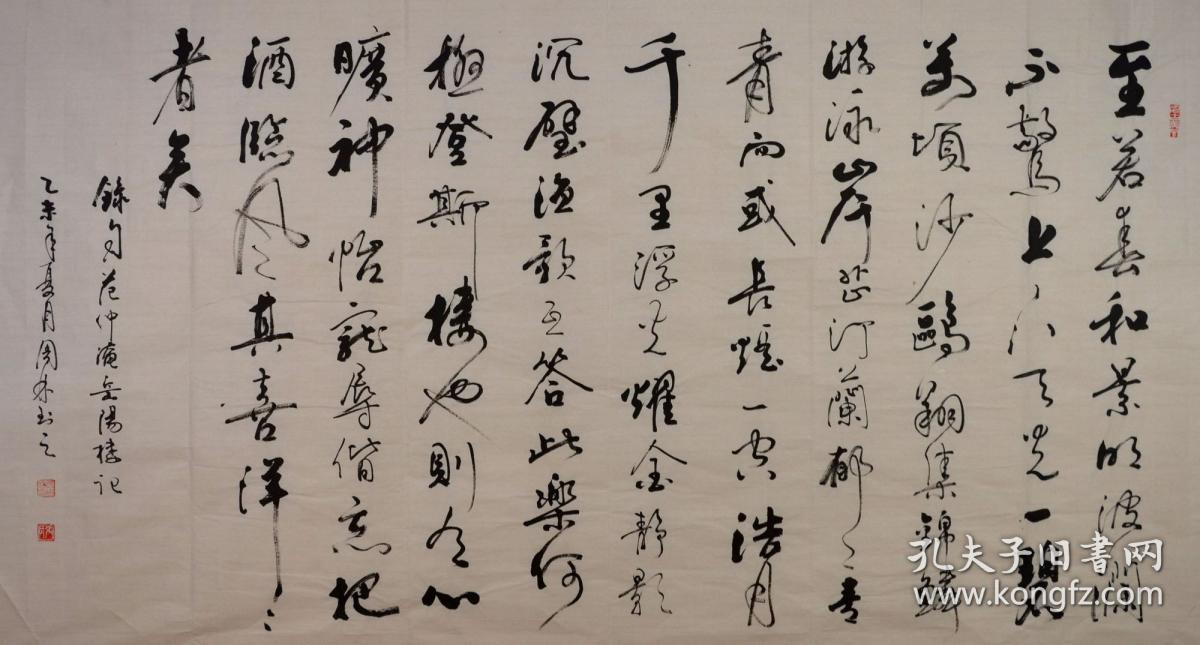 至若春和景明波瀾
不驚上下天光一碧
萬頃沙鷗翔集錦鱗
游泳岸芷汀蘭郁〻青
青而或長煙一空浩月
千里浮光耀金靜影
沉璧漁歌互答此樂何
極登斯樓也則有心
曠神怡寵辱偕忘把
酒臨風其喜洋〻
者矣
錄句范仲淹岳陽樓記
乙未年夏月周书之
孔夫子旧书网
www.kongfz.com